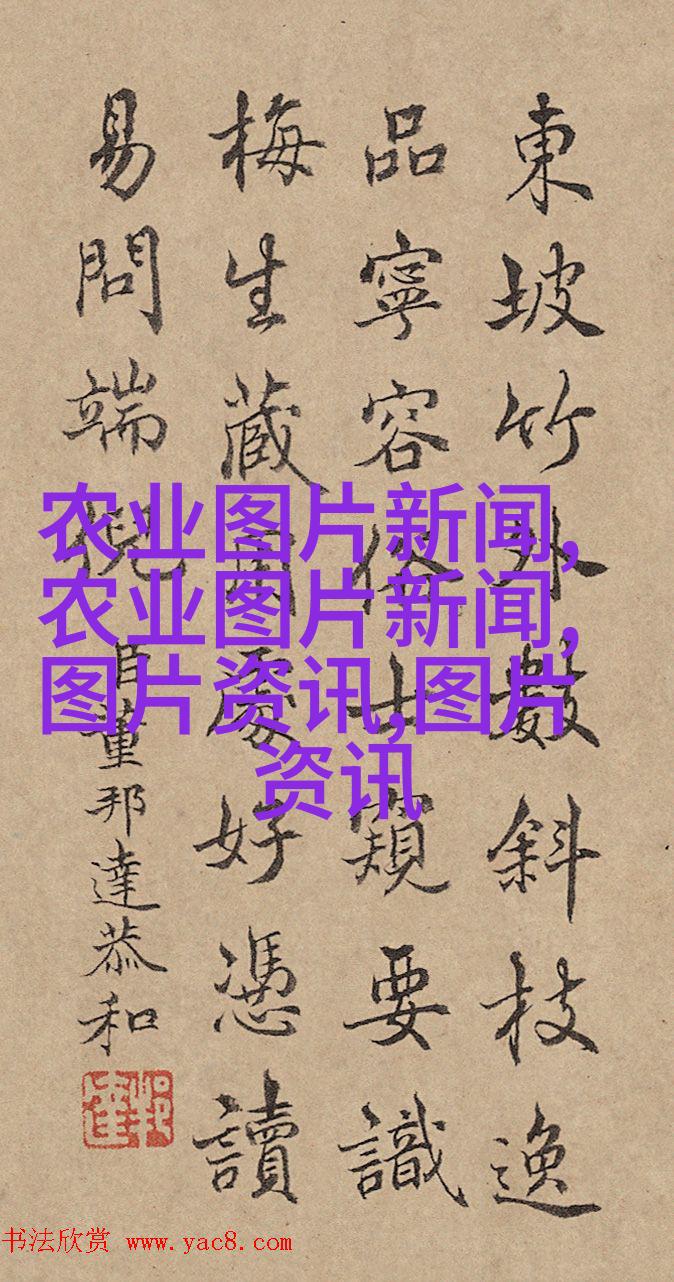 東坡竹外數斜枝逸
品寧容俗士窺要識
梅生藏用處好憑讀
易問端倪
臣董邦達恭和
农业图片新闻,
农业图片新闻,
图片资讯,图片
资讯
书法欣赏 www.yac8.com